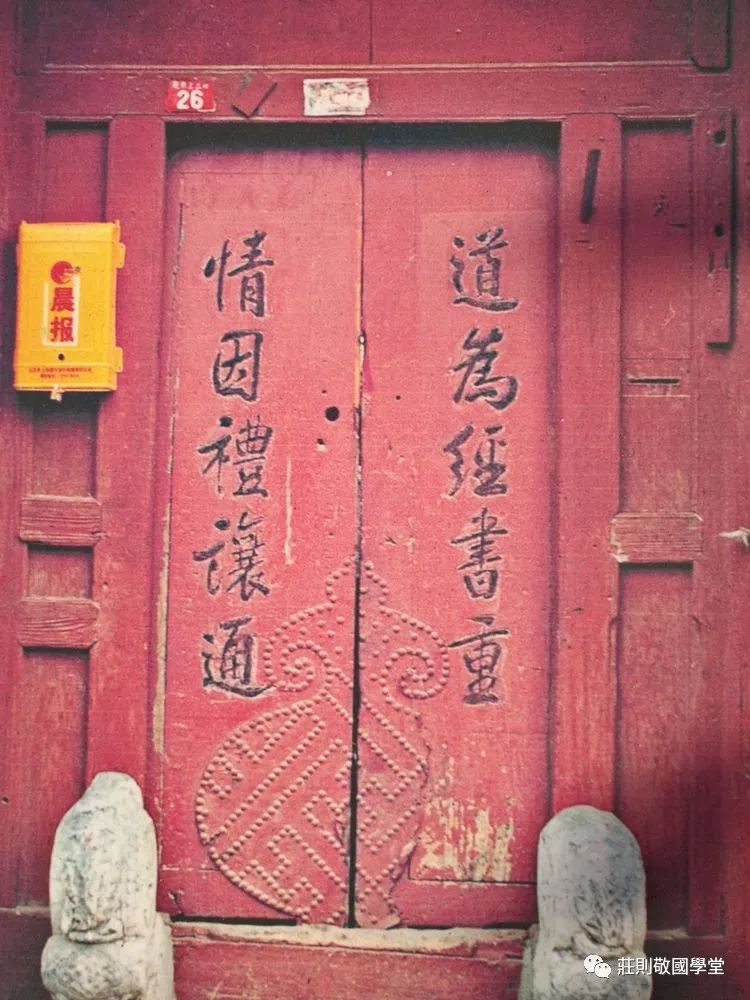 26
道為經書重
情因禮讓通
晨报
莊則敬國學堂